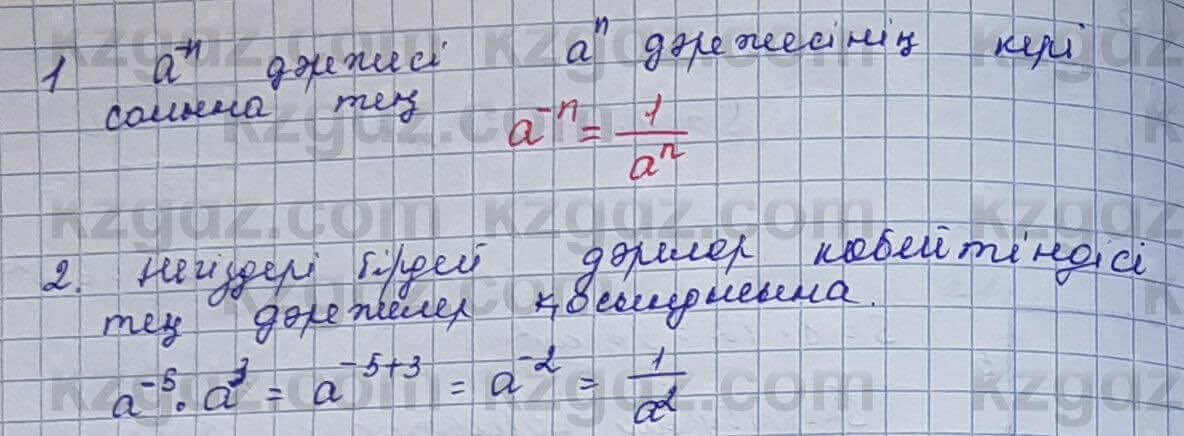 1 a⁻ⁿ дәрежесі aⁿ дәрежесінің кері
санына тең
a⁻ⁿ = 1/aⁿ
2. Негіздері бірдей көбейтіндісі
тең дәрежелер қосындысына.
a⁻⁵ · a³ = a⁻⁵⁺³ = a⁻² = 1/a²
kzgdz.com